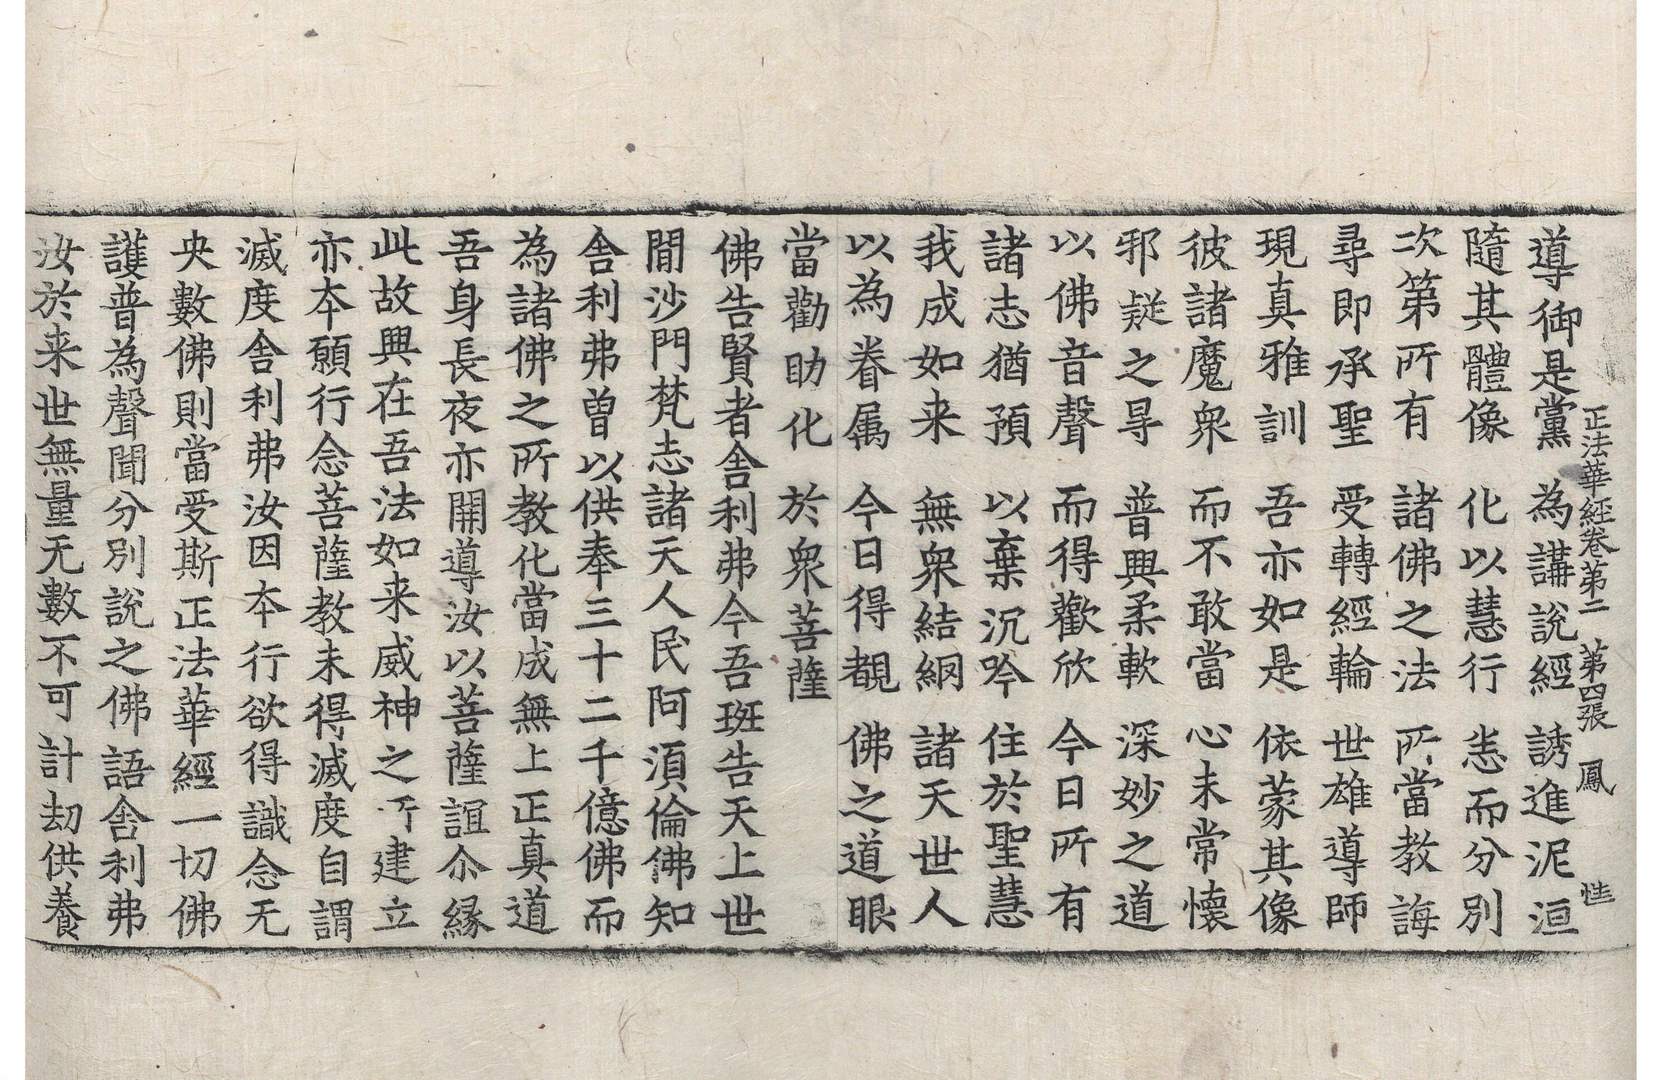 正法華經卷第二　第四張　鳳　恠
導御是黨　為講說經　誘進泥洹
隨其體像　化以慧行　恙而分別
次第所有　諸佛之法　所當教誨
尋即承聖　受轉經輪　世雄導師
現真雅訓　吾亦如是　依蒙其像
彼諸魔衆　而不敢當　心未常懷
邪疑之㝵　普興柔軟　深妙之道
以佛音聲　而得歡欣　今日所有
諸志猶預　以棄沉吟　住於聖慧
我成如来　無衆結網　諸天世人
以為眷属　今日得覩　佛之道眼
當勸助化　於衆菩薩
佛告賢者舍利弗今吾班告天上世
間沙門梵志諸天人民阿須倫佛知
舍利弗曽以供奉三十二千億佛而
為諸佛之所教化當成無上正真道
吾身長夜亦開導汝以菩薩誼尒縁
此故興在吾法如来威神之所建立
亦夲願行念菩薩教未得滅度自謂
滅度舍利弗汝因夲行欲得識念无
央數佛則當受斯正法華經一切佛
護普為聲聞分別說之佛語舍利弗
汝於来世無量无數不可計劫供養